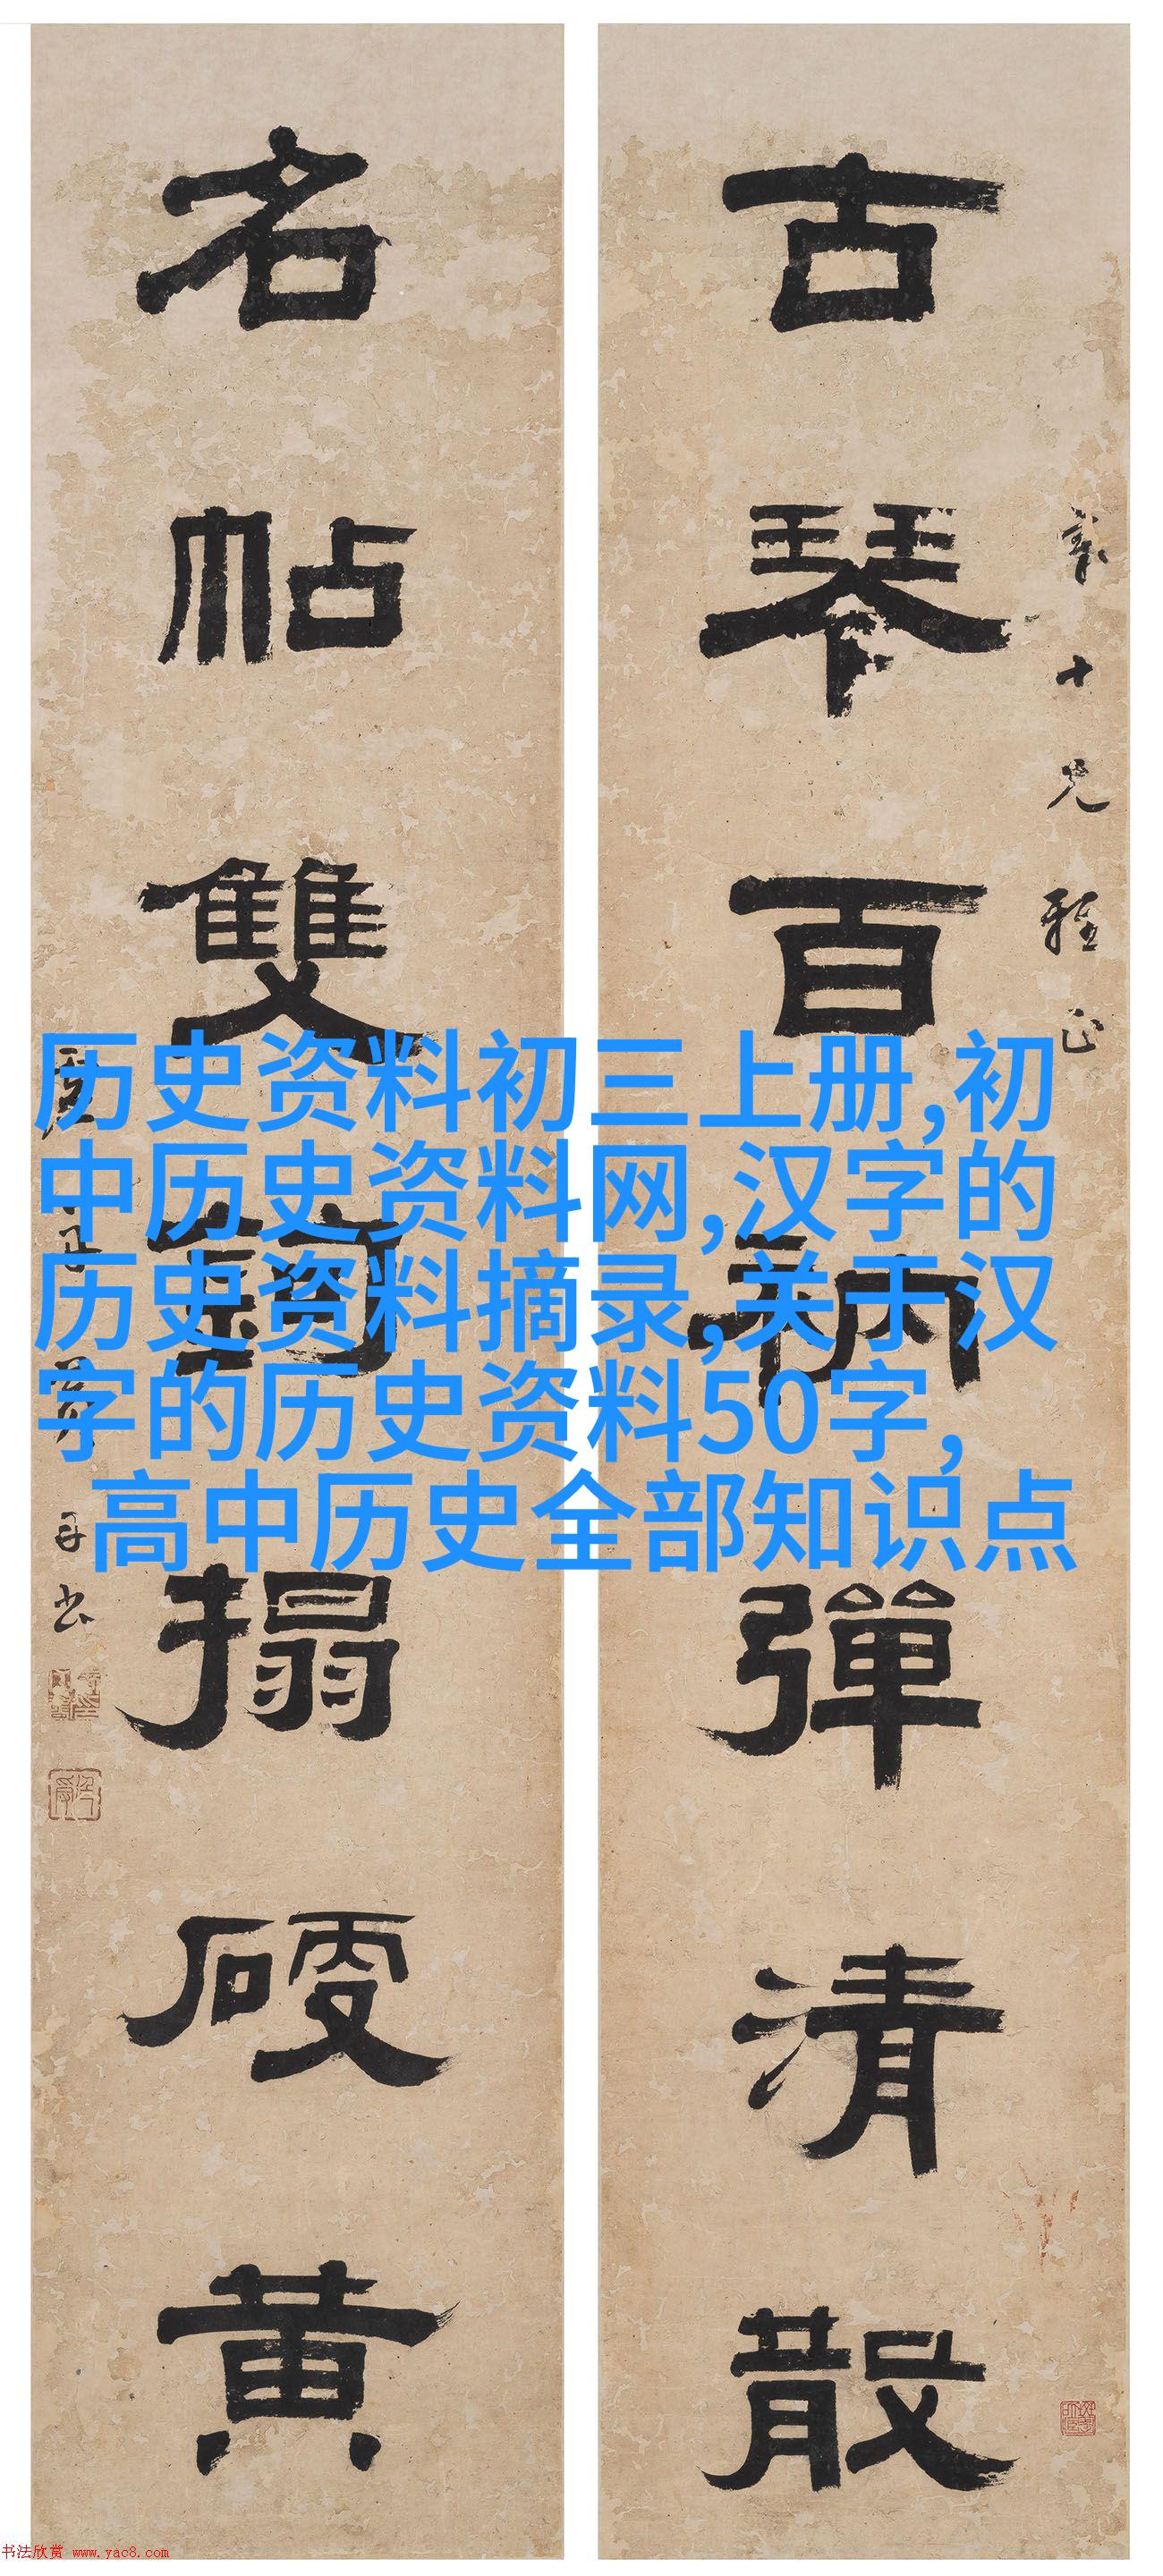 古琴百衲彈清散
十兄雅正
名帖雙鉤搨硬黃
历史资料初三上册,初
中历史资料网,汉字的
历史资料摘录,关于汉
字的历史资料50字,
高中历史全部知识点
书法欣赏 www.yac8.com